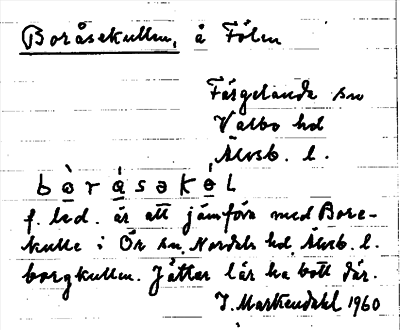 Boråsekullen, å Fölen
Färgelanda sn
Valbo hd
Älvsb. l.
bò̲rá̲səkó̲l
f. led. är att jämföra med Bore-
kulle i Ör sn, Nordals hd, Älvsb. l.
borgkullen. Jättar lär ha bott där.
J. Markendahl 1960